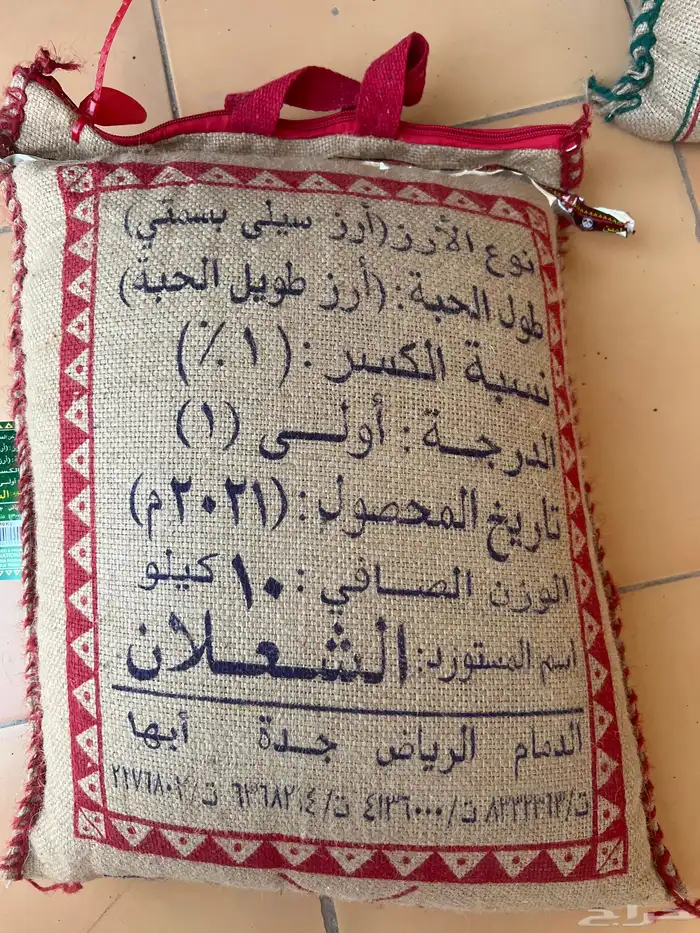 نوع الأرز (أرز سيلي بسمتي)
طول الحبة : (أرز طويل الحبة)
نسبة الكسر : (١٪)
الدرجة : أولى (١)
تاريخ المحصول : (٢٠٢١م)
الوزن الصافي : ١٠ كيلو
اسم المستورد : الشعلان
الدمام الرياض جدة أبها
ت/٨٢٢٢٣٦٣ ت/٤١٣٦٠٠٠ ت/٦٣٦٨٢٠٤ ت/٢٢٧٦٨٠٢
حراج